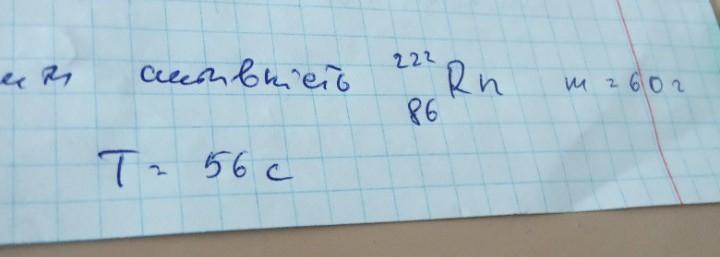 активність ²²²₈₆Rn m = 60 г
T = 56 с